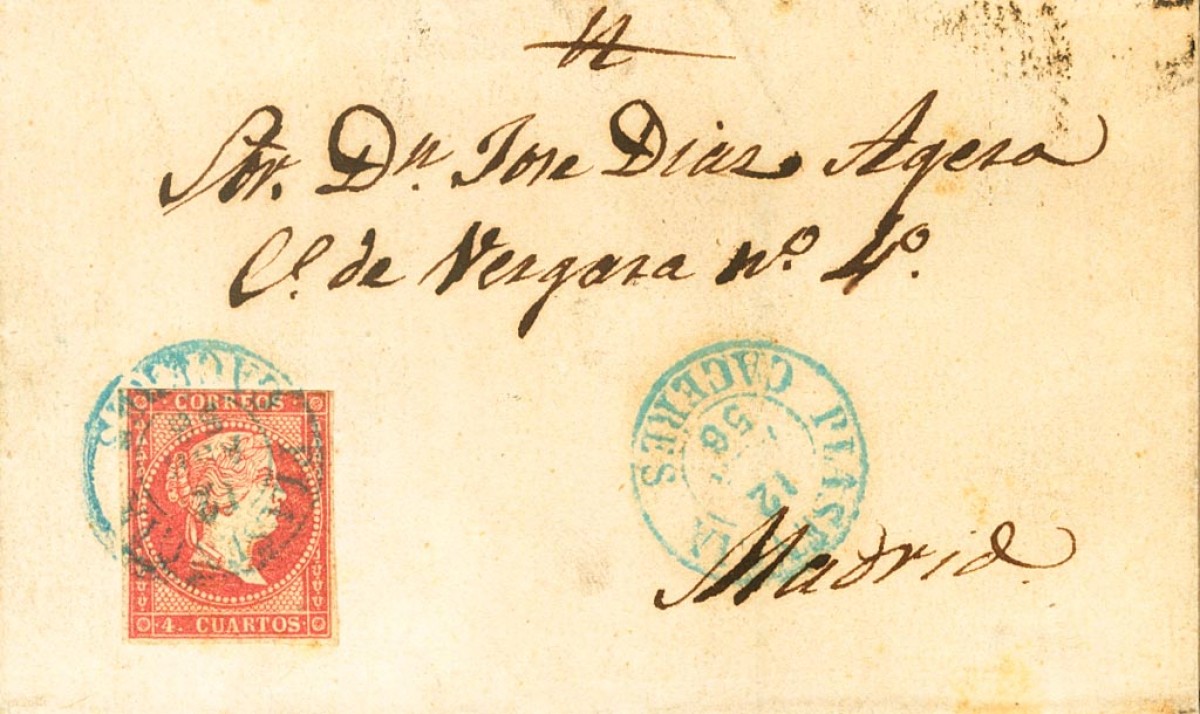 Sor. Dn. Jose Dias Agera
Cl. de Vergara nº. 4º.
CORREOS
4. CUARTOS
CACERES
12
58
Madrid.